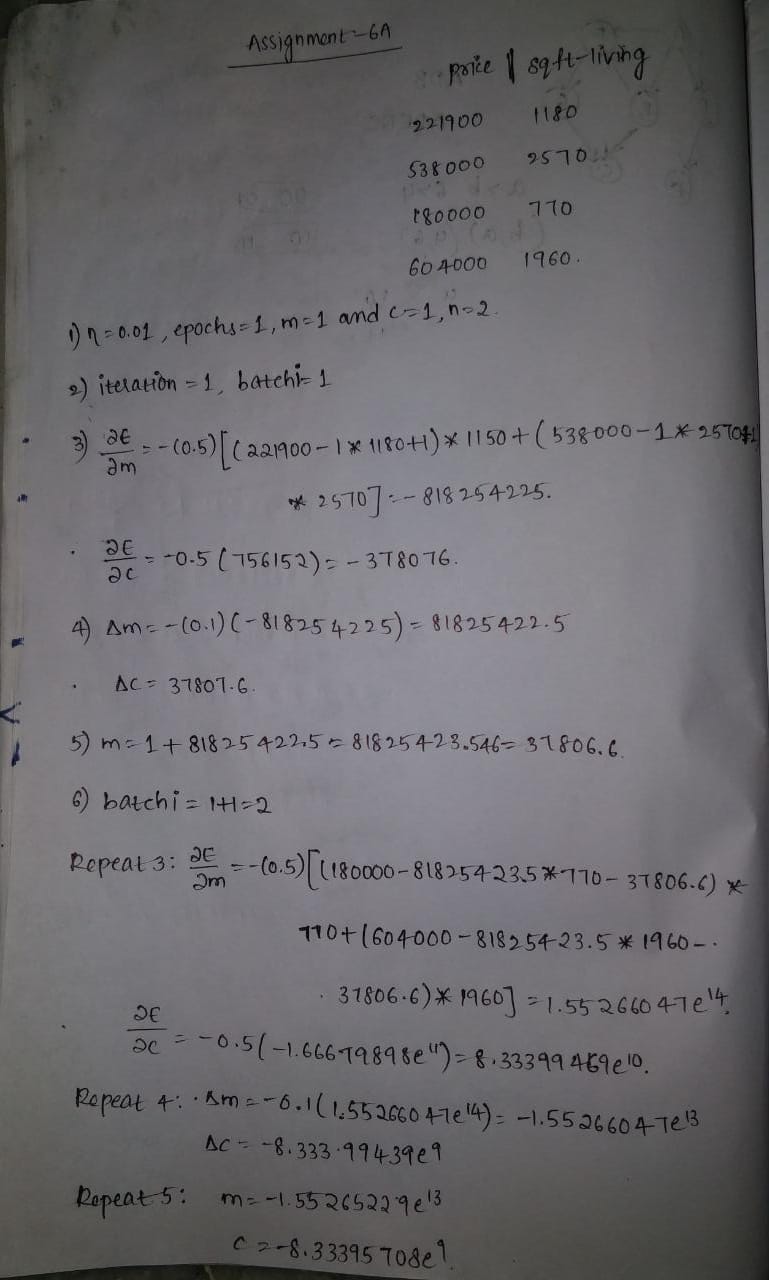 Assignment-6A
price || sqft-living
221900 1180
538000 2570
180000 770
604000 1960.
1) η=0.01, epochs=1, m=1 and c=1, n=2.
2) iteration = 1, batchi= 1
3) ∂E/∂m = -(0.5)[(221900-1*1180+1)*1150+(538000-1*2570+1
* 2570] = -818254225.
∂E/∂c = -0.5(756152) = -378076.
4) Δm = -(0.1)(-818254225) = 81825422.5
ΔC = 37807.6.
5) m=1+81825422.5 = 81825423.546= 37806.6.
6) batchi = 1+1=2
Repeat 3: ∂E/∂m = -(0.5)[(180000-81825423.5*770-37806.6)*
770+(604000-81825423.5*1960-
37806.6)*1960] = 1.55266047e14.
∂E/∂c = -0.5(-1.66679898e11) = 8.33399469e10.
Repeat 4: Δm = -0.1(1.55266047e14) = -1.55266047e13
ΔC = -8.333.99439e9
Repeat 5: m=-1.55265229e13
c=-8.33395708e9.